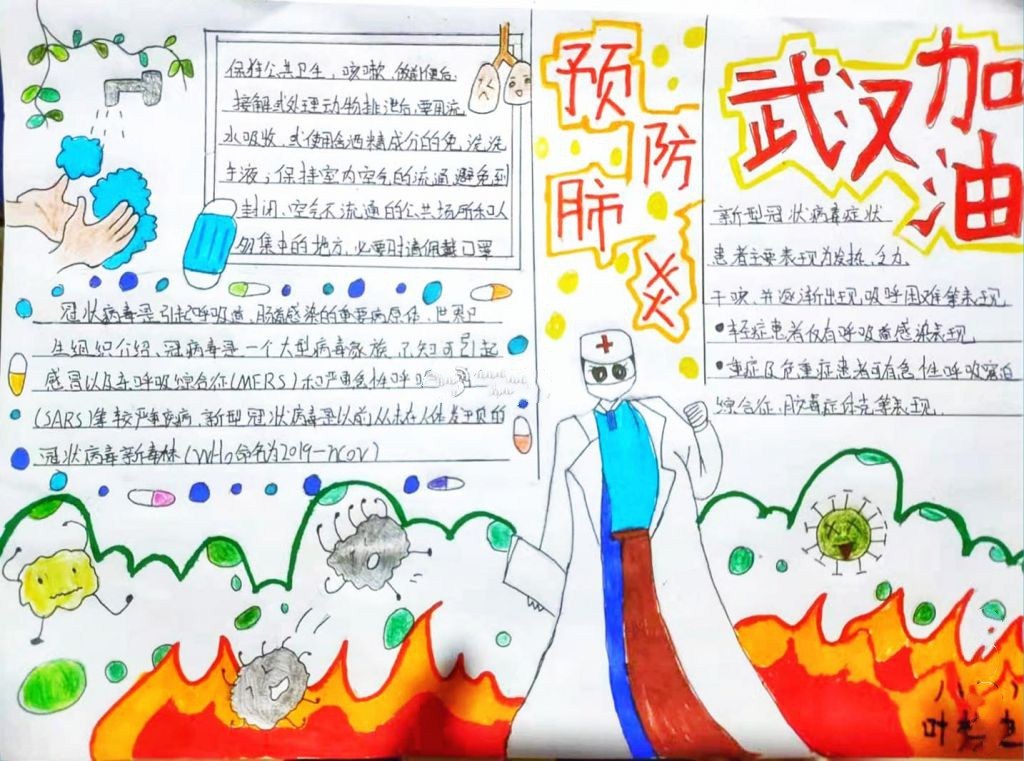 保持公共卫生，咳嗽、做前便后
接触或处理动物排泄后，要用流
水吸收，或使用含酒精成分的免洗洗
手液；保持室内空气的流通避免到
封闭、空气不流通的公共场所和人
集中的地方，必要时请佩戴口罩
冠状病毒是引起呼吸道、肠道感染的重要病原体，世界卫
生组织介绍，冠病毒是一个大型病毒家族，已知可引起
感冒以及东呼吸综合征(MERS)和严重急性呼
(SARS)等较严重疾病，新型冠状病毒是以前从未在人体发现的
冠状病毒新毒株(Who命名为2019-ncov)
预
防
肺
炎
武汉加油
新型冠状病毒症状
患者主要表现为发热、乏力
干咳，并逐渐出现呼吸困难等表现
•轻症患者仅有呼吸道感染表现
•重症及危重症患者可有急性呼吸窘迫
综合征、脓毒症休克等表现
叶